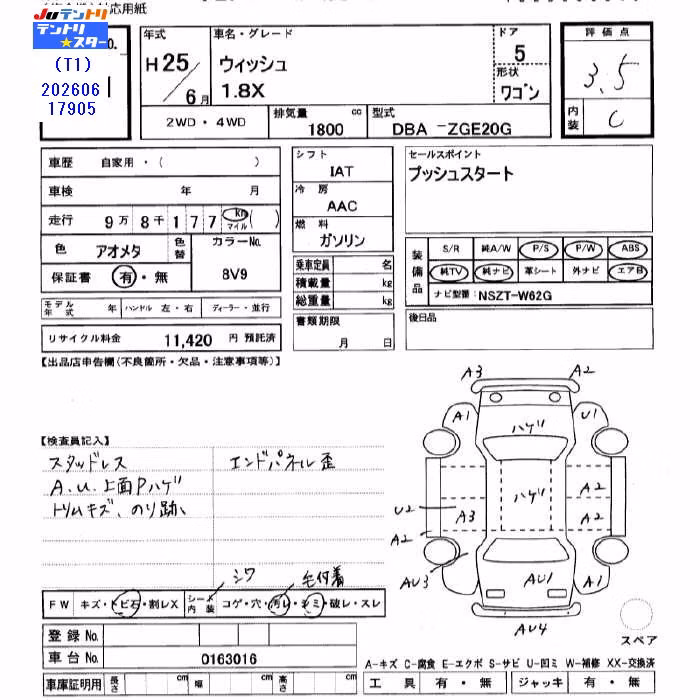 対応用紙
JUテントリ
テントリ★スター
(T1)
202606
17905
No.
年式
H25/6月
車名・グレード
ウィッシュ
1.8X
ドア
5
形状
ワゴン
評価点
3.5
内装
C
2WD・4WD
排気量
1800 cc
型式
DBA -ZGE20G
車歴 自家用・( )
車検 年 月
走行 9万8千177 km マイル ( )
色 アオメタ
色替
カラーNo.
8V9
保証書 有・無
モデル年式 年 ハンドル 左・右 ディーラー・並行
リサイクル料金 11,420 円 預託済
シフト
IAT
冷房
AAC
燃料
ガソリン
乗車定員 名
積載量 kg
総重量 kg
書類期限
月 日
セールスポイント
プッシュスタート
装備品
S/R 純A/W P/S P/W ABS
純TV 純ナビ 革シート 外ナビ エアB
ナビ型番:NSZT-W62G
後日品
【出品店申告欄(不良箇所・欠品・注意事項等)】
【検査員記入】
スタッドレス
A.U.上面Pハゲ
トリムキズ、のり跡、
エンドパネル歪
シワ
毛付着
FW キズ・トビ石・割レX
シート内装 コゲ・穴・汚レ・シミ・破レ・スレ
登録No.
車台No. 0163016
車庫証明用 長さ cm 幅 cm 高さ cm
A3 A2
A1 ハゲ U1
ハゲ A2
U2 A3 A2
A2
AU3 AU1 A1
AU4
スペア
A-キズ C-腐食 E-エクボ S-サビ U-凹ミ W-補修 XX-交換済
工具 有・無 ジャッキ 有・無